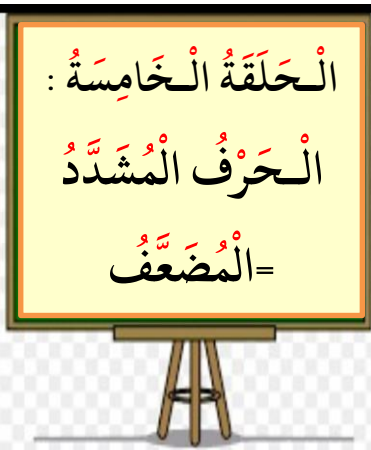 الْـحَلَقَةُ الْـخَامِسَةُ :
الْـحَرْفُ الْمُشَدَّدُ
=الْمُضَعَّفُ